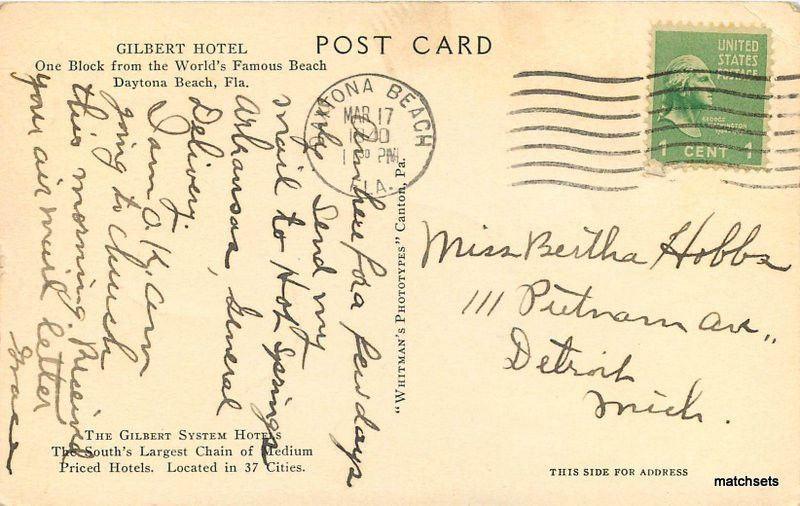 GILBERT HOTEL
One Block from the World's Famous Beach
Daytona Beach, Fla.
POST CARD
DAYTONA BEACH
MAR 17
1940
PM
FLA.
UNITED
STATES
POSTAGE
GEORGE
WASHINGTON
1 CENT 1
am here for a few days
only. Send my
mail to Hot Springs
Arkansas, General
Delivery.
I am O.K. am
going to church
this morning. Received
your air mail letter
Grace
"WHITMAN'S PHOTOTYPES" Canton, Pa.
Miss Bertha Hobbs
111 Putnam Av.,
Detroit
Mich.
THE GILBERT SYSTEM HOTELS
The South's Largest Chain of Medium
Priced Hotels. Located in 37 Cities.
THIS SIDE FOR ADDRESS
matchsets